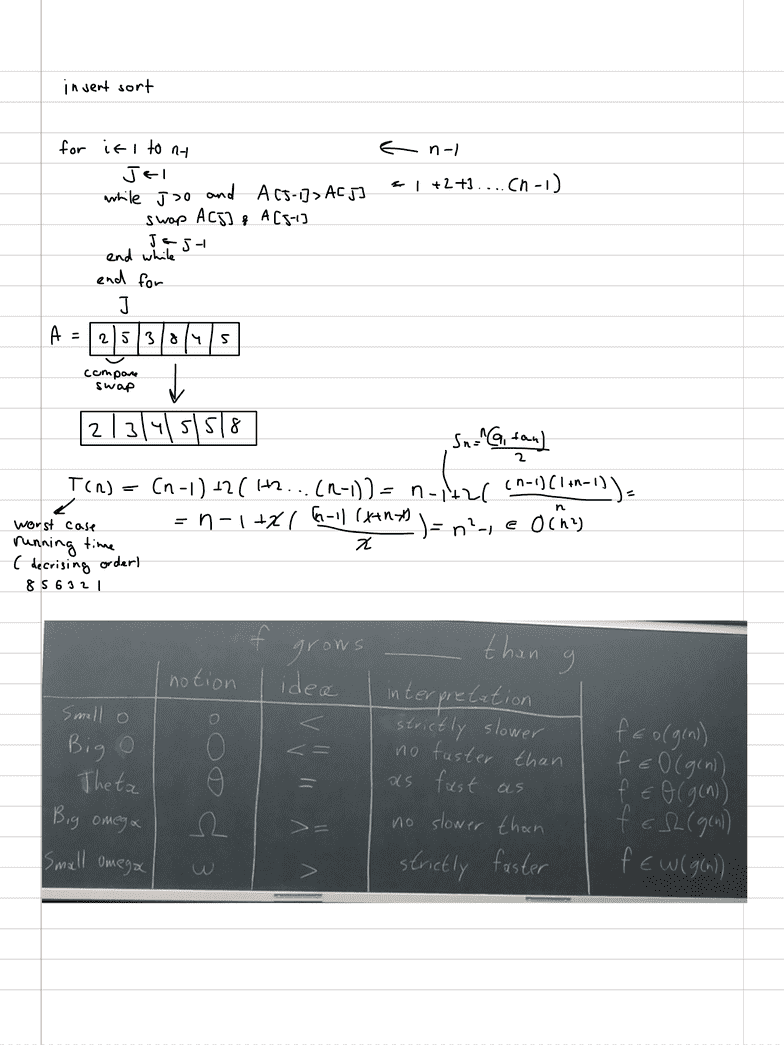 insert sort
for i ← 1 to n-1 ← n-1
J ← 1
while J>0 and A[J-1]>A[J] ← 1+2+3....(n-1)
swap A[J] & A[J-1]
J ← J-1
end while
end for
J
A = 2 5 3 8 4 5
compare
swap
2 3 4 5 5 8
Sn = n(a1+an)/2
T(n) = (n-1)+2(1+2...(n-1)) = n-1+2((n-1)(1+n-1)/n) =
= n-1+2((n-1)(1+n-1)/2) = n²-1 ∈ O(n²)
worst case
running time
(decrising order)
8 5 6 3 2 1
f grows ____ than g
notion idea interpretation
Small o o < strictly slower f ∈ o(g(n))
Big O O <= no faster than f ∈ O(g(n))
Theta θ = as fast as f ∈ θ(g(n))
Big omega Ω >= no slower than f ∈ Ω(g(n))
Small omega ω > strictly faster f ∈ ω(g(n))